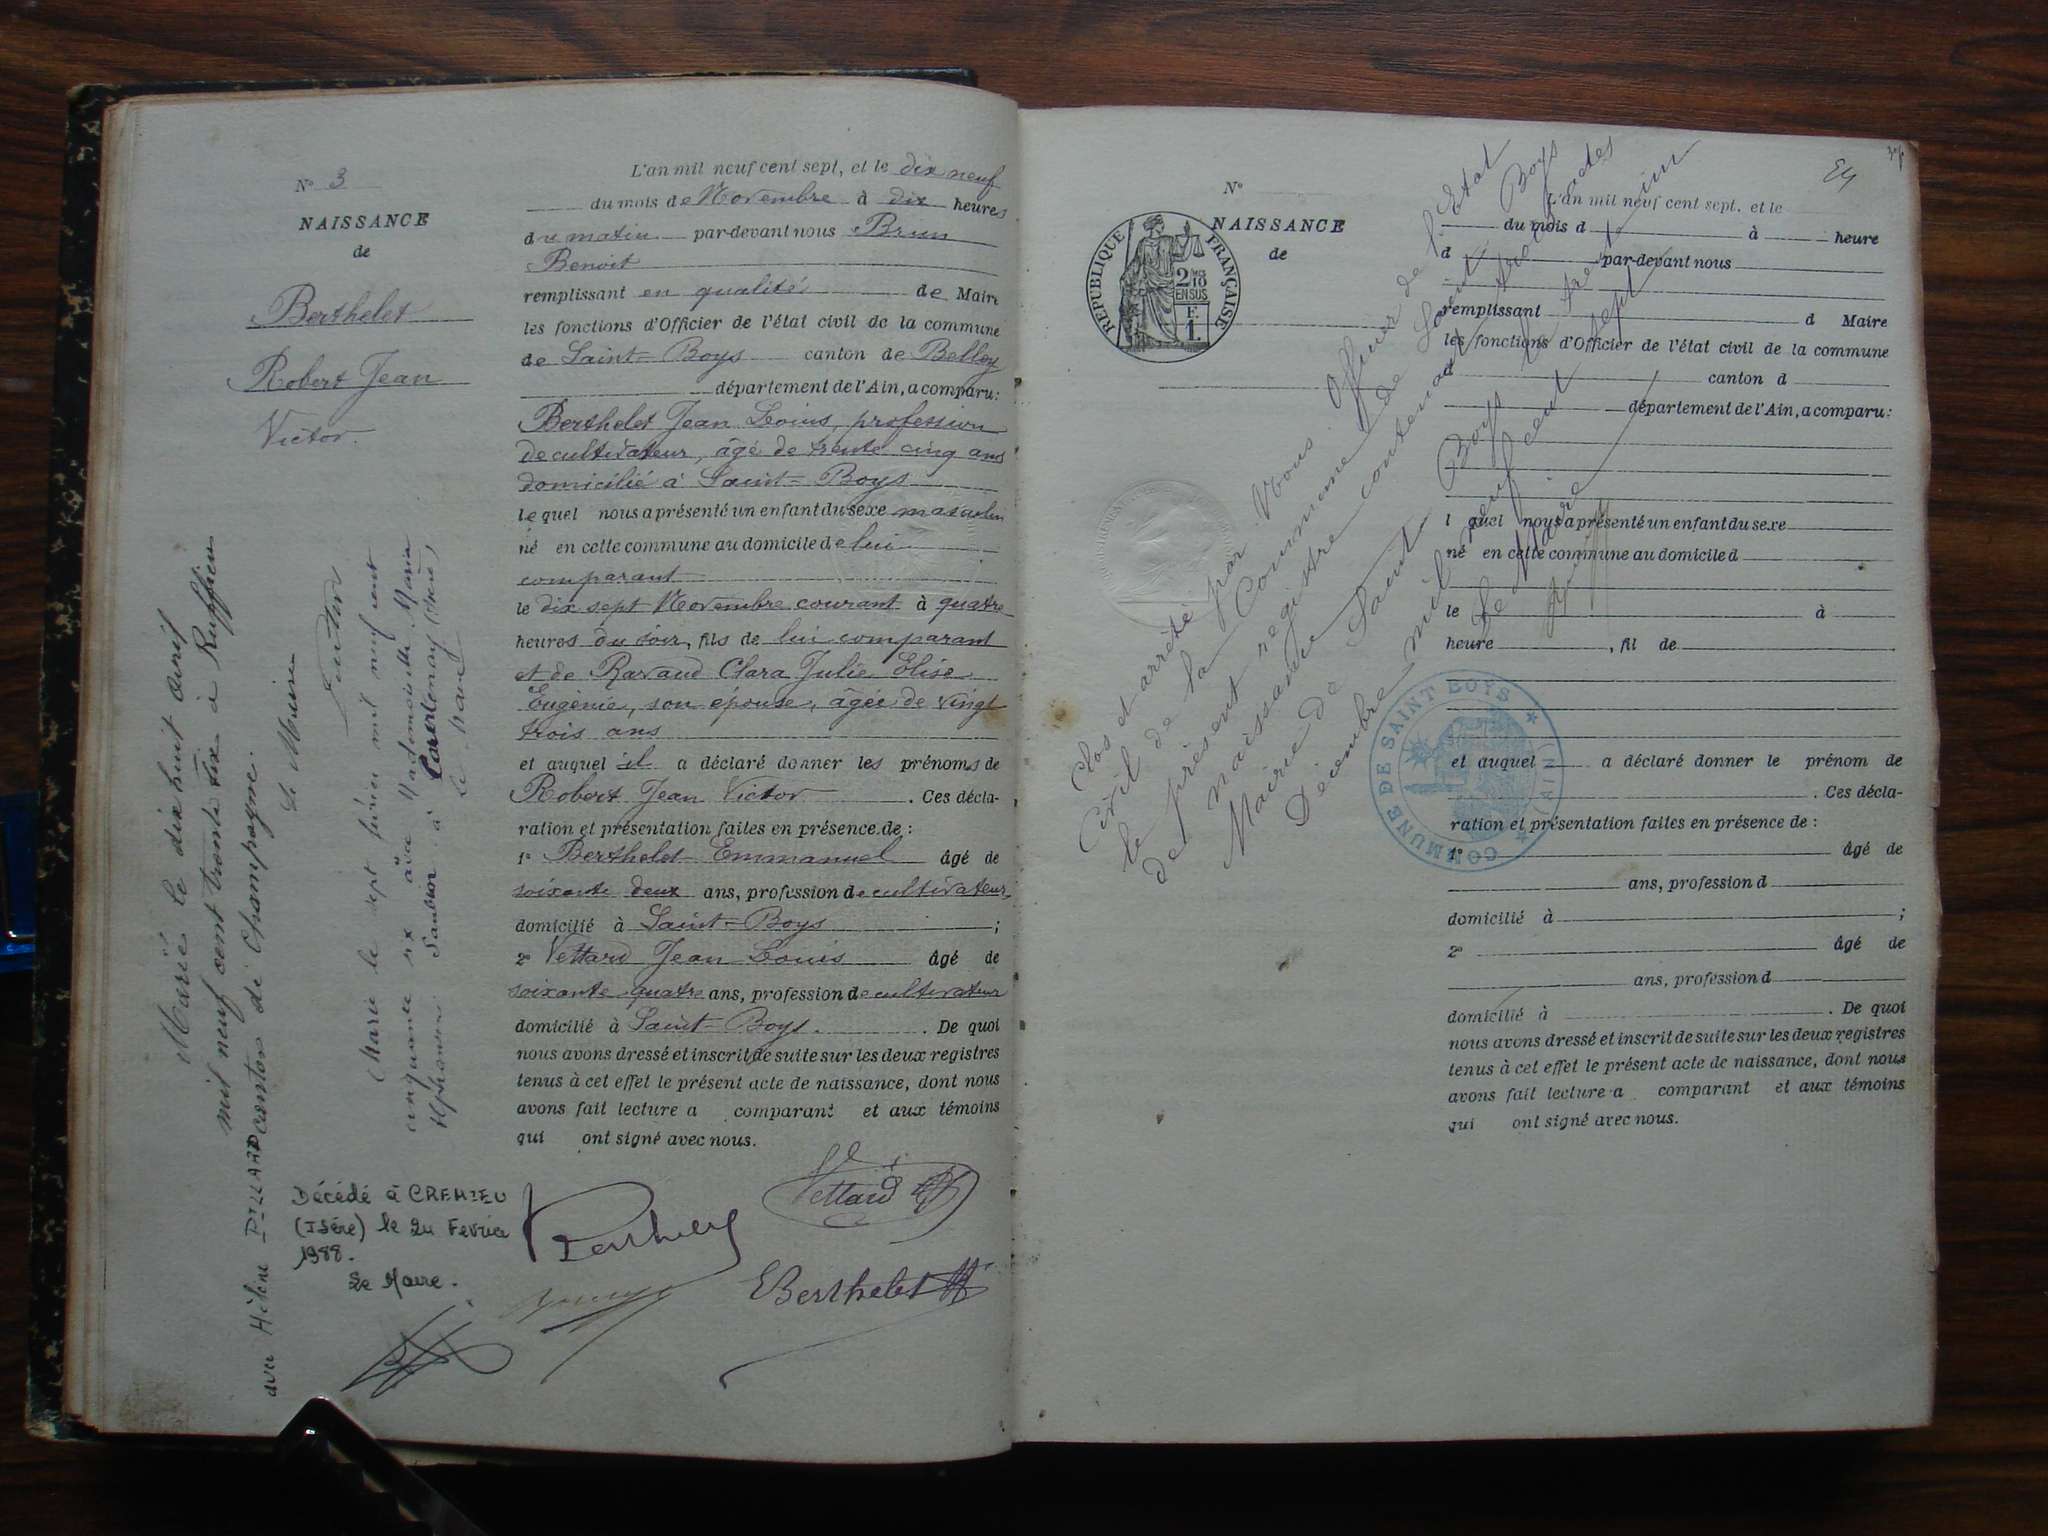 N° 3
NAISSANCE
de
Berthelet
Robert Jean
Victor.
L'an mil neuf cent sept, et le dix neuf
du mois de Novembre à dix heures
du matin par-devant nous Brun
Benoit
remplissant en qualité de Maire
les fonctions d'Officier de l'état civil de la commune
de Saint-Boys canton de Belley
département de l'Ain, a comparu:
Berthelet Jean Louis, profession
de cultivateur, âgé de trente cinq ans
domicilié à Saint-Boys
lequel nous a présenté un enfant du sexe masculin
né en cette commune au domicile de lui
comparant
le dix sept Novembre courant à quatre
heures du soir, fils de lui comparant
et de Ravaud Clara Julie Elise
Eugènie, son épouse, âgée de vingt
trois ans
et auquel il a déclaré donner les prénoms de
Robert Jean Victor. Ces décla-
ration et présentation faites en présence de :
1° Berthelet Emmanuel âgé de
soixante deux ans, profession de cultivateur,
domicilié à Saint-Boys ;
2° Vettard Jean Louis âgé de
soixante quatre ans, profession de cultivateur
domicilié à Saint-Boys. De quoi
nous avons dressé et inscrit de suite sur les deux registres
tenus à cet effet le présent acte de naissance, dont nous
avons fait lecture a comparant et aux témoins
qui ont signé avec nous.
Vettard
Berthelet
EBerthelet
Marié le dix huit avril
mil neuf cent trente six à Ruffieu
canton de Champagne.
avec Hélène
Le Maire
Marié le sept février mil neuf cent
cinquante six avec Mademoiselle Maria
à
(Isère)
Le Maire
Décédé à CREMIEU
(Isère) le 24 Fevrier
1988.
Le Maire.
24
N°
NAISSANCE
de
RÉPUBLIQUE FRANÇAISE
2/10
EN SUS
F.
1.
L'an mil neuf cent sept, et le
du mois d à heure
d par-devant nous
remplissant d Maire
les fonctions d'Officier de l'état civil de la commune
d canton d
département de l'Ain, a comparu:
l quel nous a présenté un enfant du sexe
né en cette commune au domicile d
le à
heure , fil de
et auquel a déclaré donner le prénom de
. Ces décla-
ration et présentation faites en présence de :
1° âgé de
ans, profession d
domicilié à ;
2° âgé de
ans, profession d
domicilié à . De quoi
nous avons dressé et inscrit de suite sur les deux registres
tenus à cet effet le présent acte de naissance, dont nous
avons fait lecture a comparant et aux témoins
qui ont signé avec nous.
Clos et arrêté par Nous Officier de l'Etat
Civil de la Commune de Saint Boys
le présent registre contenant trois actes
de naissance
Mairie de Saint Boys le trente un
Décembre mil neuf cent sept
Le Maire
COMMUNE DE SAINT BOYS
(AIN)